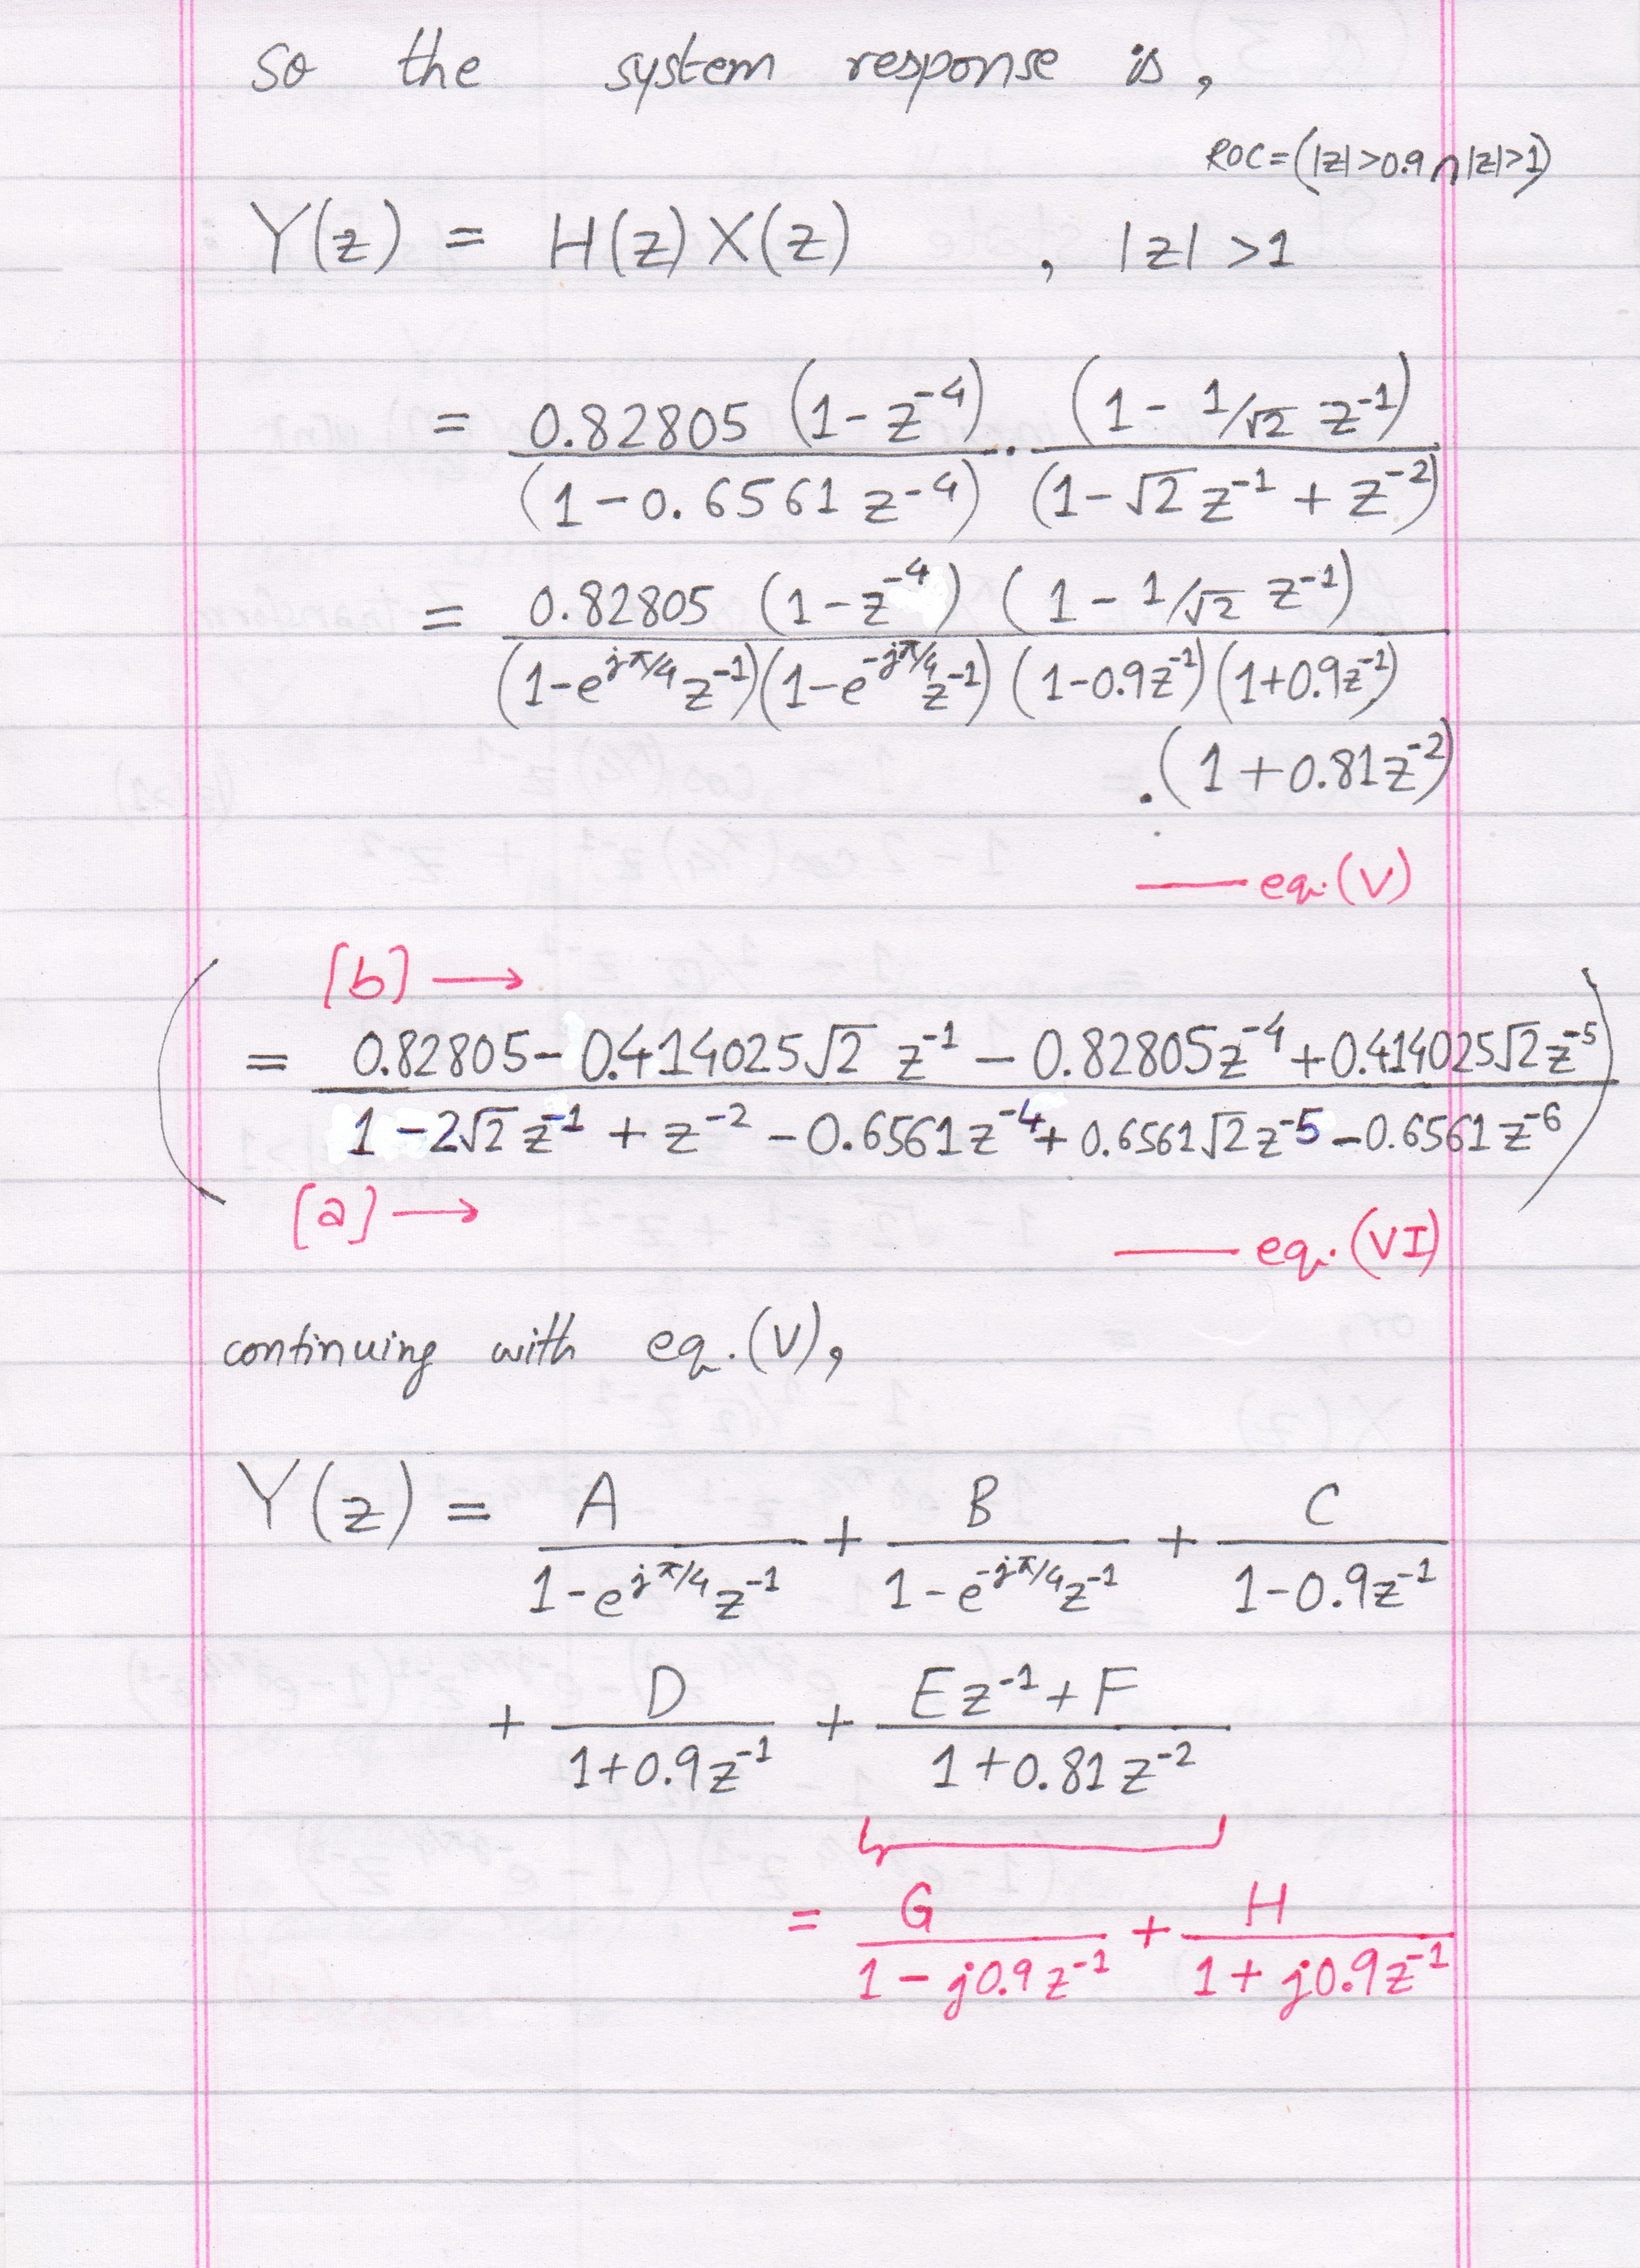 so the system response is,
ROC=(|z|>0.9 ∩ |z|>1)
Y(z) = H(z) X(z) , |z| >1
= 0.82805 (1-z⁻⁴) / (1-0.6561 z⁻⁴) . (1- 1/√2 z⁻¹) / (1-√2 z⁻¹ + z⁻²)
= 0.82805 (1-z⁻⁴) (1- 1/√2 z⁻¹) / (1-e^{jπ/4} z⁻¹)(1-e^{-jπ/4} z⁻¹) (1-0.9z⁻¹)(1+0.9z⁻¹)
.(1+0.81z⁻²)
—— eq.(V)
[b] →
( = 0.82805-0.414025√2 z⁻¹ - 0.82805z⁻⁴ +0.414025√2 z⁻⁵ / 1-2√2 z⁻¹ + z⁻² -0.6561z⁻⁴+ 0.6561√2 z⁻⁵ -0.6561 z⁻⁶ )
[a] →
—— eq.(VI)
continuing with eq.(V),
Y(z) = A / 1-e^{jπ/4} z⁻¹ + B / 1-e^{-jπ/4} z⁻¹ + C / 1-0.9z⁻¹
+ D / 1+0.9z⁻¹ + Ez⁻¹+F / 1+0.81z⁻²
= G / 1-j0.9z⁻¹ + H / 1+j0.9z⁻¹